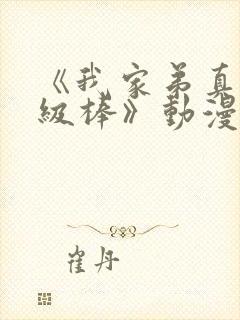 《我家弟真
級棒》動漫
崔丹